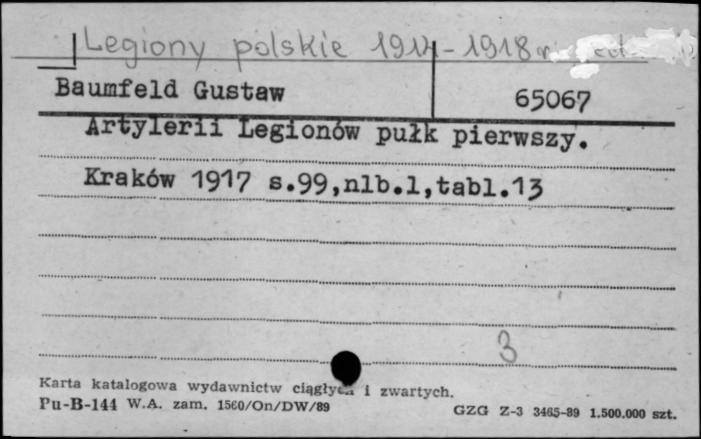 Legiony polskie 1914-1918 r.
Baumfeld Gustaw 65067
Artylerii Legionów pułk pierwszy.
Kraków 1917 s.99,nlb.1,tabl.13
3
Karta katalogowa wydawnictw ciągłych i zwartych.
Pu-B-144 W.A. zam. 1560/On/DW/89 GZG Z-3 3465-89 1.500.000 szt.